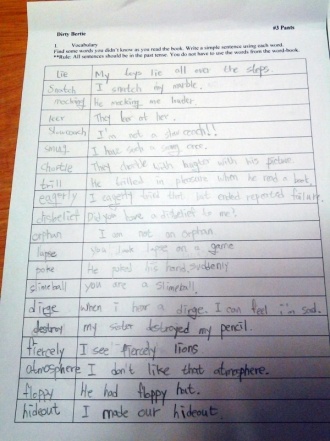 Dirty Bertie
#3 Pants
1 Vocabulary
Find some words you didn't know as you read the book. Write a simple sentence using each word.
**Rule: All sentences should be in the past tense. You do not have to use the words from the word-book.
Lie My toys lie all over the steps.
Snatch I snatch my marble.
mocking He mocking me louder.
leer They leer at her.
Slowcoach I'm not a slowcoach!!
snout I have such a snout
chortle They chortle with laughter with his picture.
trill He trilled in pleasure when he read a book.
eagerly I eagerly tried that but ended repeated failure.
disbelief Did you have a disbelief to me?
orphan I am not an orphan
lapse you lapse on a game
poke He poked his hand suddenly
slimeball you are a slimeball.
dirge when i hear a dirge, I can feel i'm sad.
destroy my sister destroyed my pencil.
fiercely I see fiercely lions
atmosphere I don't like that atmosphere.
floppy He had floppy hat.
hideout I made our hideout.